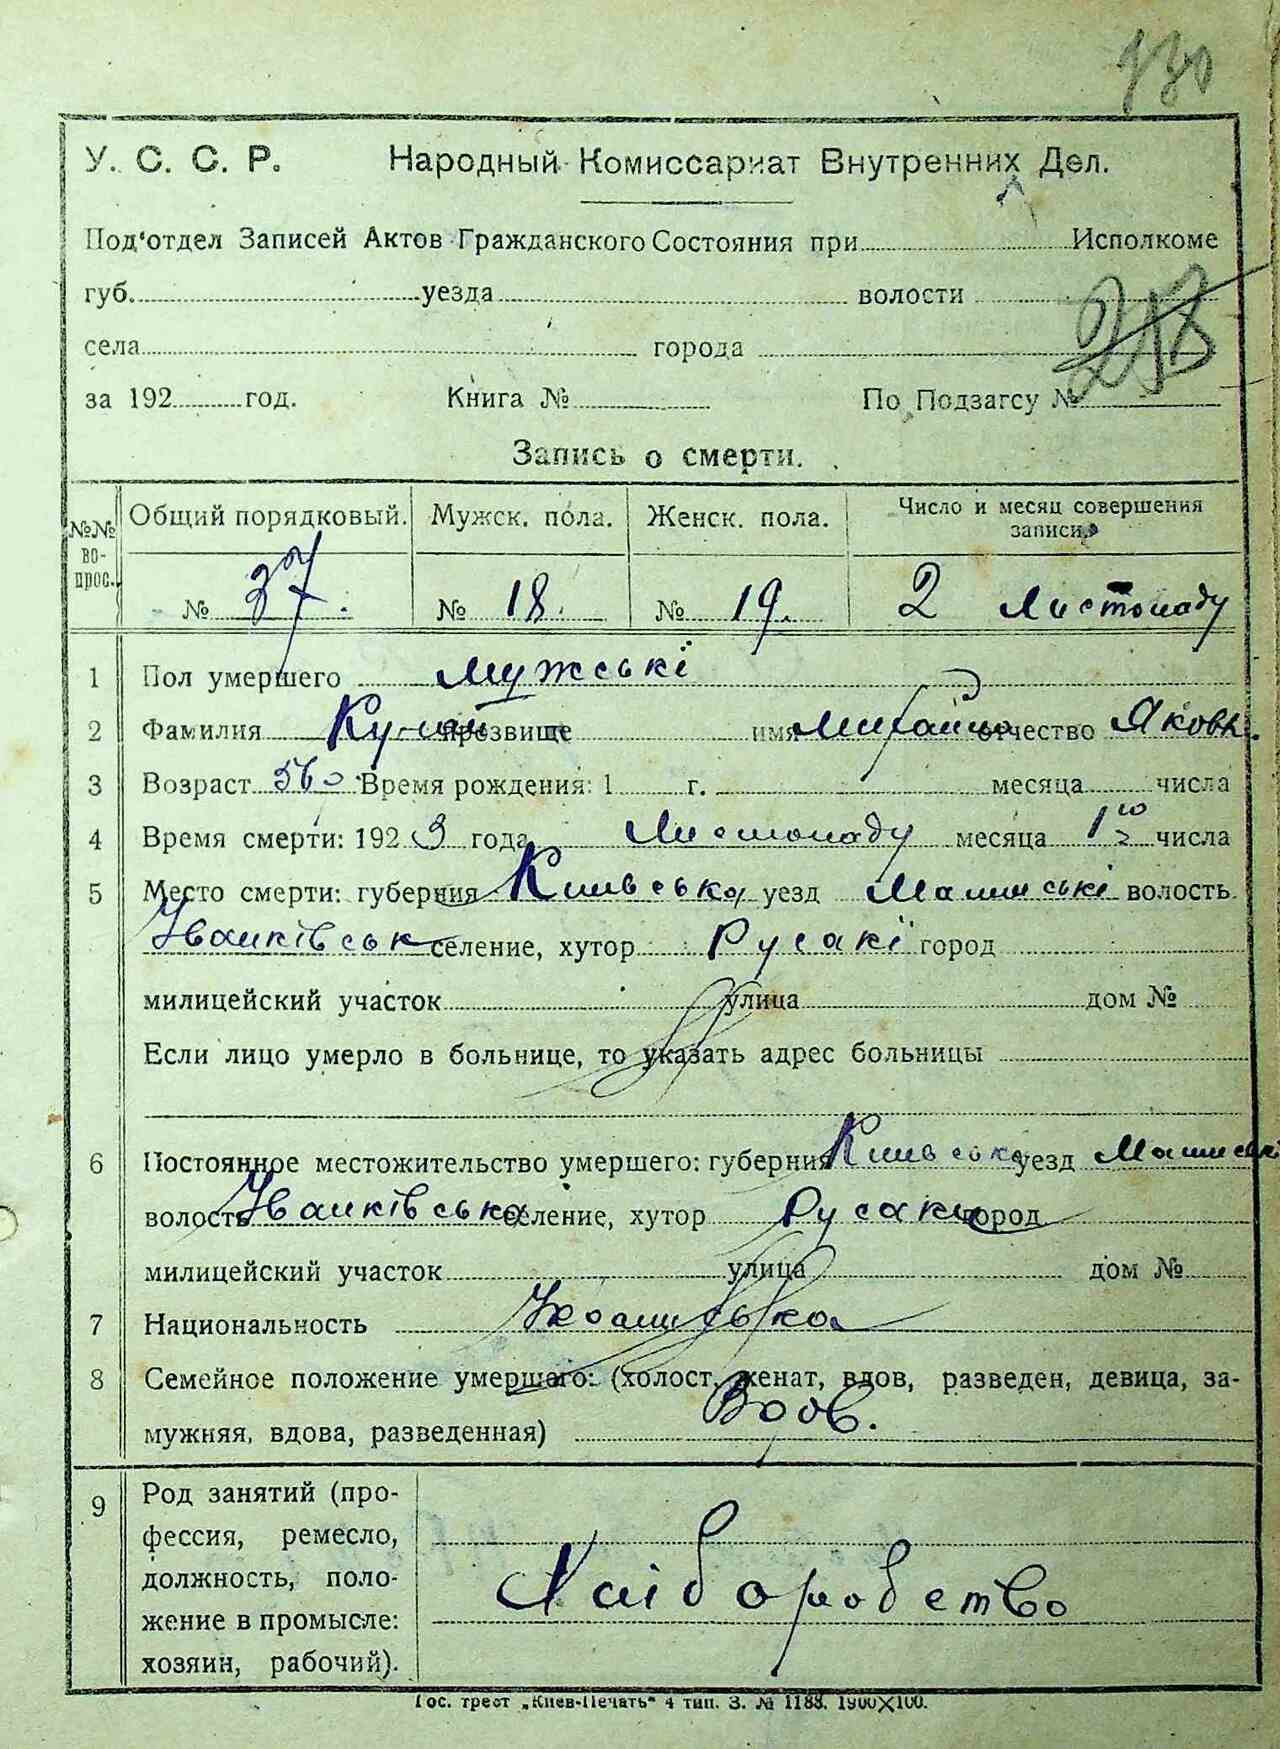 130
У. С. С. Р. Народный Комиссариат Внутренних Дел.
Под'отдел Записей Актов Гражданского Состояния при Исполкоме
губ. уезда волости
села города
за 192 год. Книга № По Подзагсу №
Запись о смерти.
№№ вопрос. Общий порядковый. Мужск. пола. Женск. пола. Число и месяц совершения записи.
№ 37. № 18. № 19. 2 Листопаду
1 Пол умершего мужські
2 Фамилия прозвище имя Михайло отчество Яковл.
3 Возраст Время рождения: 1 г. месяца числа
4 Время смерти: 1923 года Листопаду месяца 1го числа
5 Место смерти: губерния Киівська уезд Малинські волость
Іванківськ селение, хутор Русакі город
милицейский участок улица дом №
Если лицо умерло в больнице, то указать адрес больницы
6 Постоянное местожительство умершего: губерния Киівська уезд Малинські
волость Іванківська селение, хутор Русаки город
милицейский участок улица дом №
7 Национальность
8 Семейное положение умершего: (холост, женат, вдов, разведен, девица, за-
мужняя, вдова, разведенная) Вдов.
9 Род занятий (про-
фессия, ремесло,
должность, поло-
жение в промысле:
хозяин, рабочий).
Хліборобство
Гос. трест „Киев-Печать" 4 тип. З. № 1188. 1900×100.